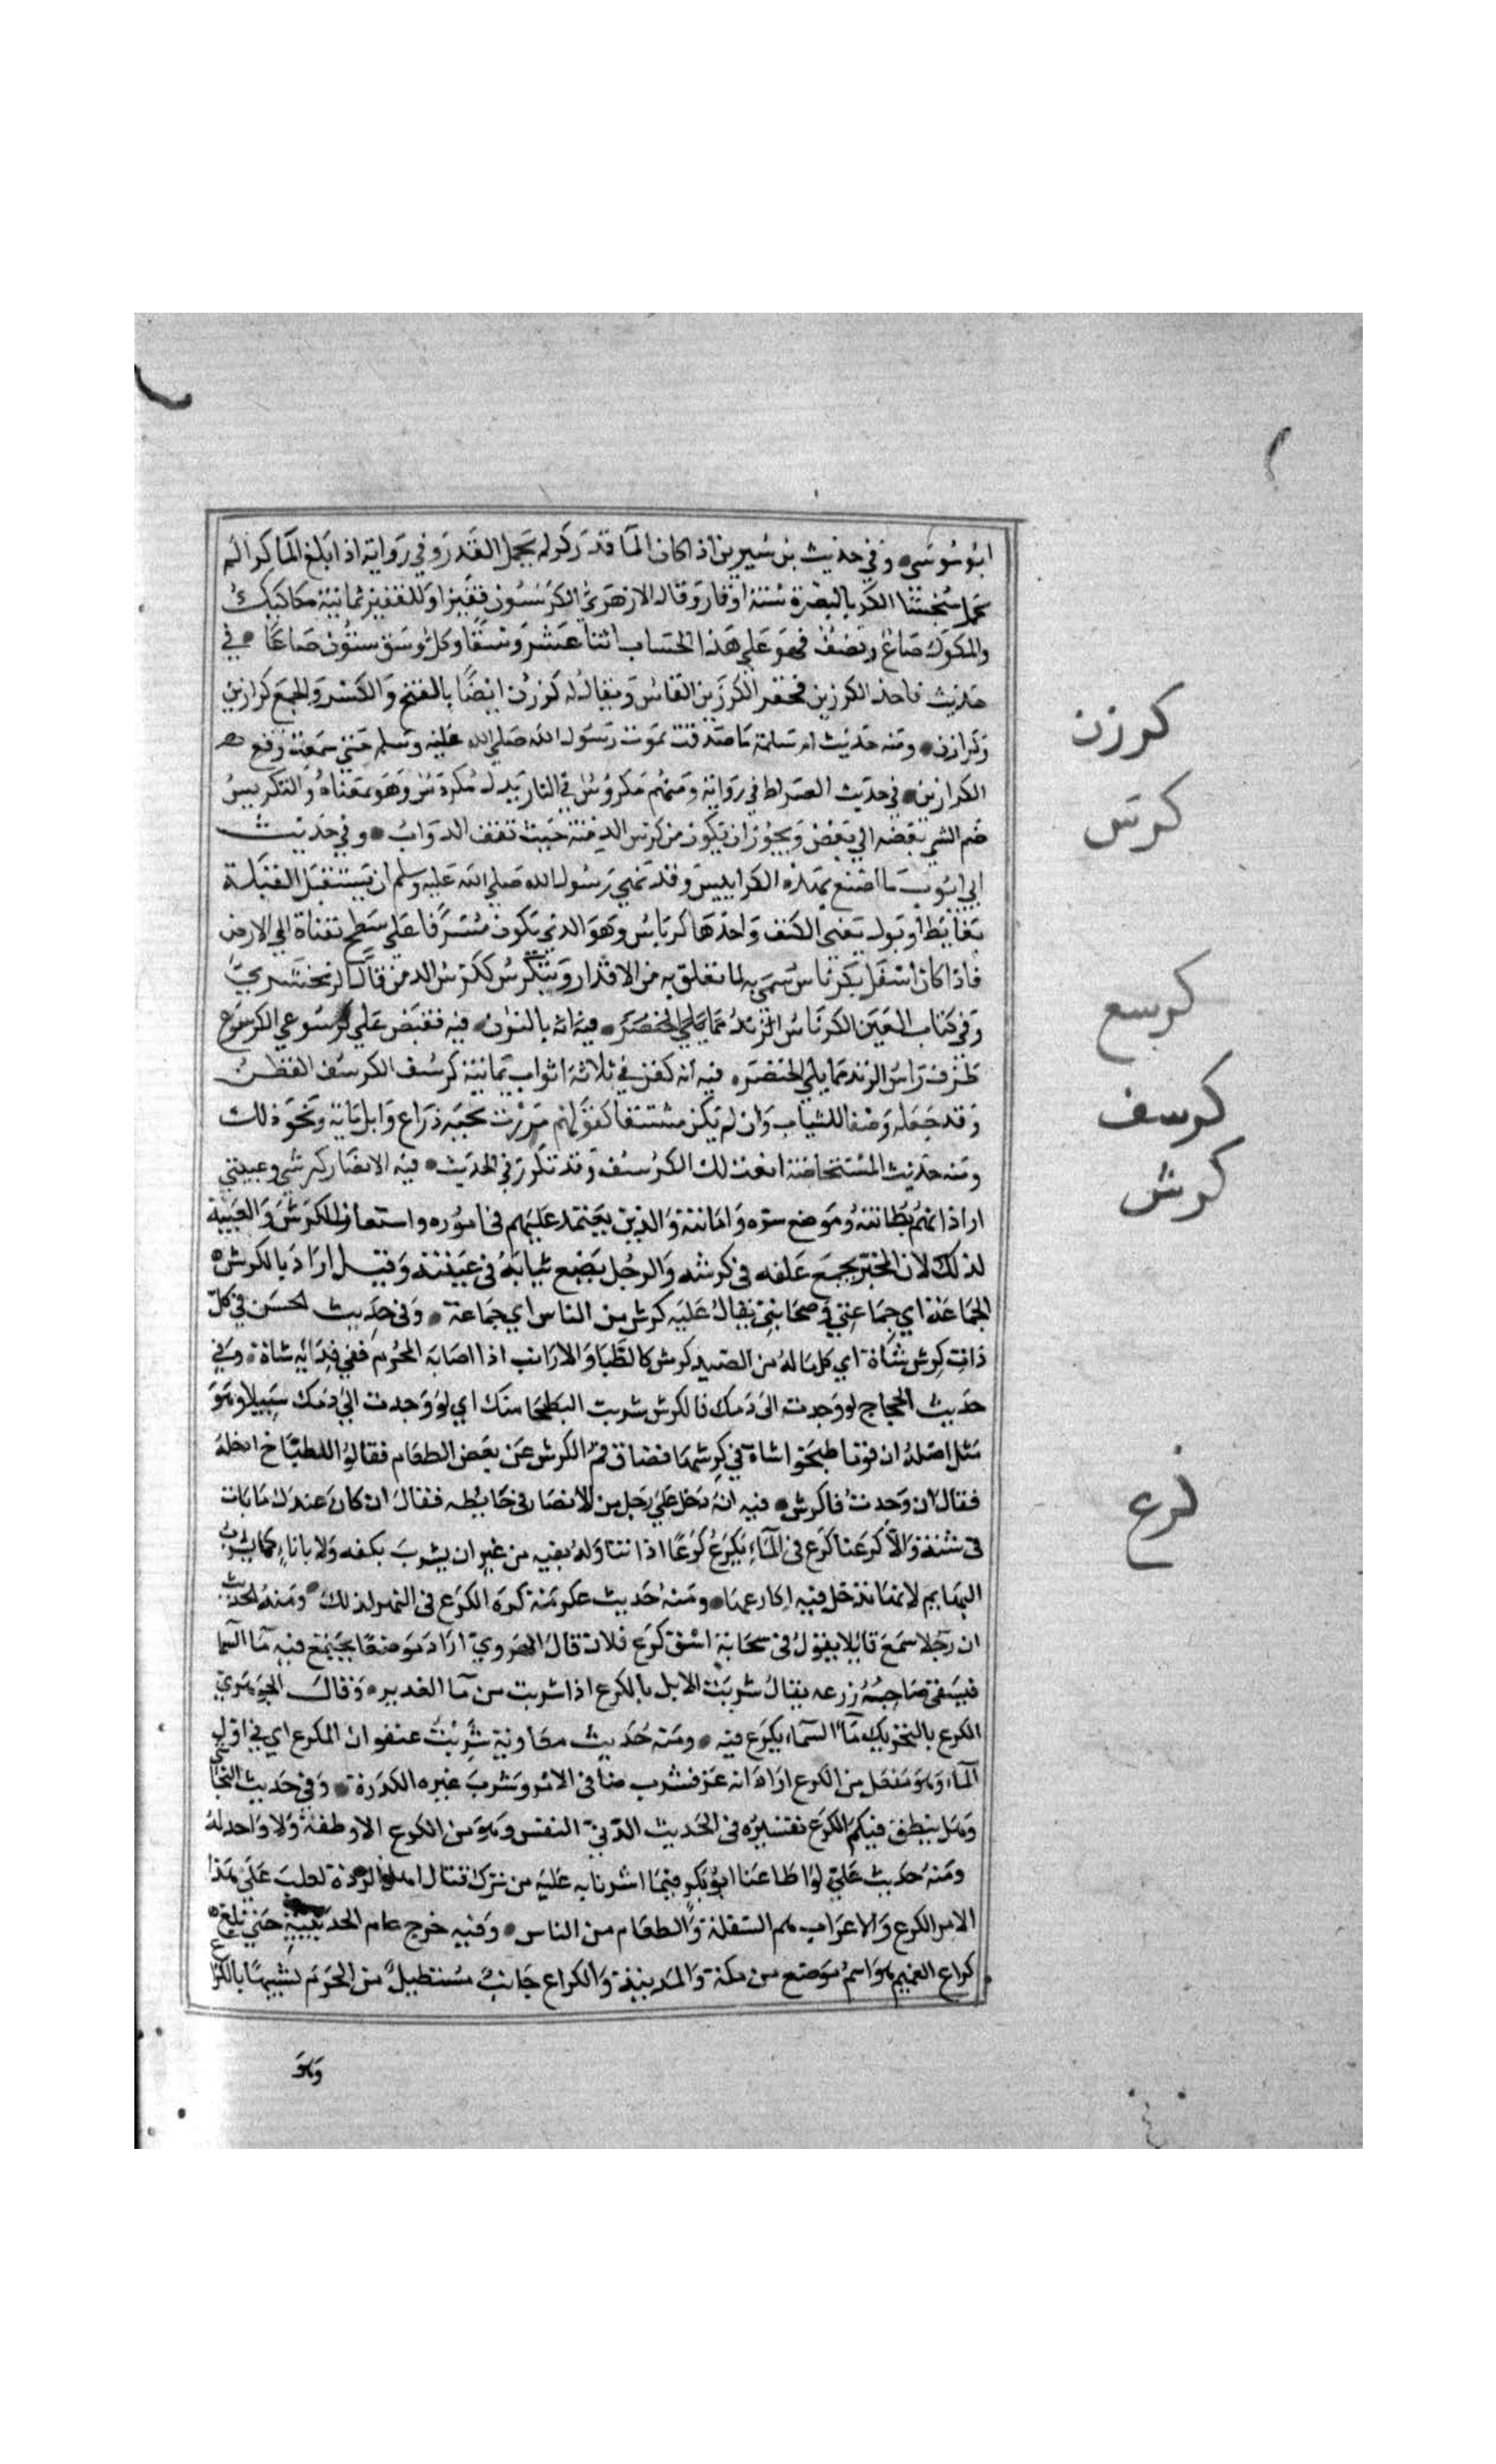 ابو موسى وفي حديث بن سيرين اذا كان الما قدر كر لم يحمل القذر وفي رواية اذا بلغ الما كرا لم
يحمل نجسا الكر بالبصرة ستة اوقار وقال الازهري الكر ستون قفيزا والقفيز ثمانية مكاكيك
والمكوك صاع ونصف فهو على هذا الحساب اثنا عشر وسقا وكل وسق ستون صاعا في
حديث فاخذ الكرزين فحفر الكرزين الفاس ويقال له كرزن ايضا بالفتح والكسر والجمع كرازين
وكرازن ومنه حديث ام سلمة ما صدقت بموت رسول الله صلى الله عليه وسلم حتى سمعت وقع
الكرازين في حديث الصراط في رواية ومنهم مكروس في النار بدل مكردس وهو بمعناه والتكريس
ضم الشي بعضه الي بعض ويجوز ان يكون من كرس الدمنة حيث تقف الدواب وفي حديث
ابي ايوب ما اصنع بهذه الكراييس وقد نهي رسول الله صلى الله عليه وسلم ان يستقبل القبلة
بغايط او بول يعني الكنف واحدها كرياس وهو الذي يكون مشرفا علي سطح بقناة الي الارض
فاذا كان اسفل بكرياس سمي به لما تعلق به من الاقذار ويتكرس ككرس الدمن قال الزمخشري
وفي كتاب العين الكرناس بالنون فيه فقبض علي كرسوعي الكرسوع
طرف راس الزند مما يلي الخنصر فيه انه كفن في ثلاثة اثواب يمانية كرسف الكرسف القطن
وقد جعله وصفا للثياب وان لم يكن مشتقا كقولهم مررت بحية ذراع وابل ماية ونحو ذلك
ومنه حديث المستحاضة انعت لك الكرسف وقد تكرر في الحديث فيه الانصار كرشي وعيبتي
اراد انهم بطانته وموضع سره وامانته والذين يعتمد عليهم في اموره واستعار الكرش والعيبة
لذلك لان المجتر يجمع علفه في كرشه والرجل يضع ثيابه في عيبته وقيل اراد بالكرش
الجماعة اي جماعتي وصحابتي يقال عليه كرش من الناس اي جماعة وفي حديث الحسن في كل
ذات كرش شاة اي كل ما له من الصيد كرش كالظبا والارانب اذا اصابه المحرم ففي فدائه شاة وفي
حديث الحجاج لو وجدت الى دمك فا كرش شربت البطحا منك اي لو وجدت الي دمك سبيلا وهو
مثل اصله ان قوما طبخوا شاة في كرشها فضاق فم الكرش عن بعض الطعام فقالوا للطباخ ادخله
فقال ان وجدت فا كرش فيه انه دخل علي رجل من الانصار في حايطه فقال ان كان عندك ما بات
في شنة والا كرعنا كرع في الماء يكرع كرعا اذا تناوله بفيه من غير ان يشرب بكفه ولا باناء كما يشرب
البهايم لانها تدخل فيه اكارعها ومنه حديث عكرمة كره الكرع في النهر لذلك ومنه الحديث
ان رجلا سمع قايلا يقول في سحابة اسق كرع فلان قال الهروي اراد موضعا يجتمع فيه ما السما
فيسقي صاحبه زرعه يقال شربت الابل بالكرع اذا شربت من ما الغدير وقال الجوهري
الكرع بالتحريك ما السماء يكرع فيه ومنه حديث معاوية شربت عنفوان المكرع اي في اول
الماء وهو مفعل من الكرع اراد انه عز فشرب صافي الامر وشرب غيره الكدر وفي حديث النجاشي
وهل ينطق فيكم الكرع تفسيره في الحديث الدني النفس وهو من الكرع الاوظفة ولا واحد له
ومنه حديث علي لو اطاعنا ابو بكر فيما اشرنا به عليه من ترك قتال اهل الردة لغلب على هذا
الامر الكرع والاعراب هم السفلة والطغام من الناس وفيه خرج عام الحديبية حتي بلغ
كراع الغميم هو اسم موضع من مكة والمدينة والكراع جانب مستطيل من الحرة تشبيها بالكراع
وهو
كرزن
كرس
كرسع
كرسف
كرش
كرع